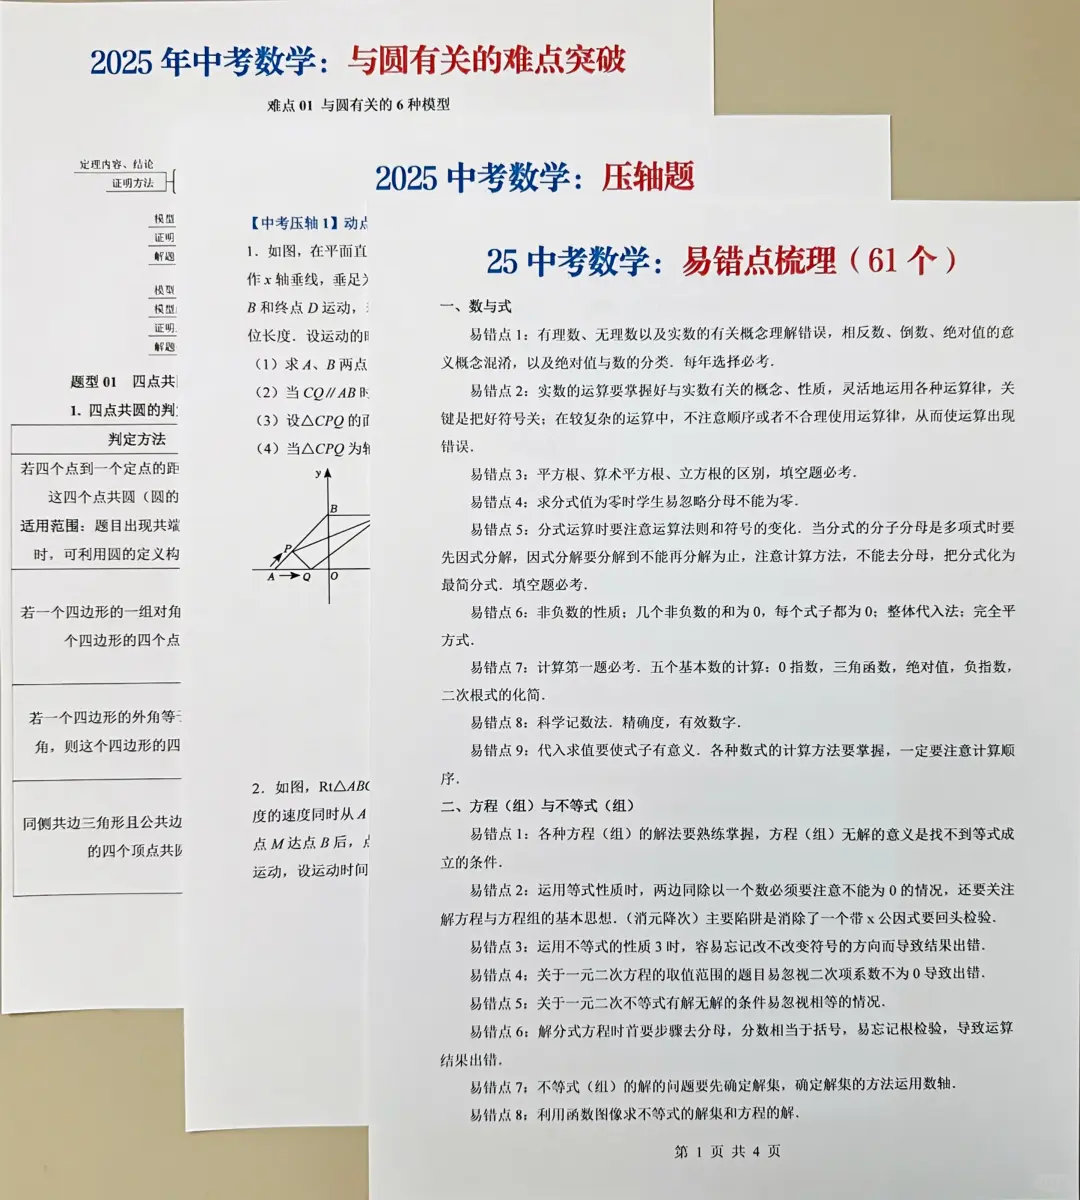 2025 年中考数学：与圆有关的难点突破
难点 01 与圆有关的 6 种模型
定理内容、结论
证明方法
模型
证明
解题
模型
模型
证明
解题
题型 01 四点共
1. 四点共圆的判
判定方法
若四个点到一个定点的距
这四个点共圆（圆的
适用范围：题目出现共端
时，可利用圆的定义构
若一个四边形的一组对角
个四边形的四个点
若一个四边形的外角等于
角，则这个四边形的四
同侧共边三角形且公共边
的四个顶点共
2025 中考数学：压轴题
【中考压轴 1】动点
1．如图，在平面直
作 x 轴垂线，垂足为
B 和终点 D 运动，
位长度．设运动的时
（1）求 A、B 两点
（2）当 CQ∥AB 时
（3）设△CPQ 的面
（4）当△CPQ 为轴
y
B
P
A
Q
O
2．如图，Rt△ABC
度的速度同时从 A
点 M 达点 B 后，点
运动，设运动时间
25 中考数学：易错点梳理（61 个）
一、数与式
易错点 1：有理数、无理数以及实数的有关概念理解错误，相反数、倒数、绝对值的意
义概念混淆，以及绝对值与数的分类．每年选择必考．
易错点 2：实数的运算要掌握好与实数有关的概念、性质，灵活地运用各种运算律，关
键是把好符号关；在较复杂的运算中，不注意顺序或者不合理使用运算律，从而使运算出现
错误．
易错点 3：平方根、算术平方根、立方根的区别，填空题必考．
易错点 4：求分式值为零时学生易忽略分母不能为零．
易错点 5：分式运算时要注意运算法则和符号的变化．当分式的分子分母是多项式时要
先因式分解，因式分解要分解到不能再分解为止，注意计算方法，不能去分母，把分式化为
最简分式．填空题必考．
易错点 6：非负数的性质；几个非负数的和为 0，每个式子都为 0；整体代入法；完全平
方式．
易错点 7：计算第一题必考．五个基本数的计算：0 指数，三角函数，绝对值，负指数，
二次根式的化简．
易错点 8：科学记数法．精确度，有效数字．
易错点 9：代入求值要使式子有意义．各种数式的计算方法要掌握，一定要注意计算顺
序．
二、方程（组）与不等式（组）
易错点 1：各种方程（组）的解法要熟练掌握，方程（组）无解的意义是找不到等式成
立的条件．
易错点 2：运用等式性质时，两边同除以一个数必须要注意不能为 0 的情况，还要关注
解方程与方程组的基本思想．（消元降次）主要陷阱是消除了一个带 x 公因式要回头检验．
易错点 3：运用不等式的性质 3 时，容易忘记改不改变符号的方向而导致结果出错．
易错点 4：关于一元二次方程的取值范围的题目易忽视二次项系数不为 0 导致出错．
易错点 5：关于一元二次不等式有解无解的条件易忽视相等的情况．
易错点 6：解分式方程时首要步骤去分母，分数相当于括号，易忘记根检验，导致运算
结果出错．
易错点 7；不等式（组）的解的问题要先确定解集，确定解集的方法运用数轴．
易错点 8：利用函数图像求不等式的解集和方程的解．
第 1 页 共 4 页